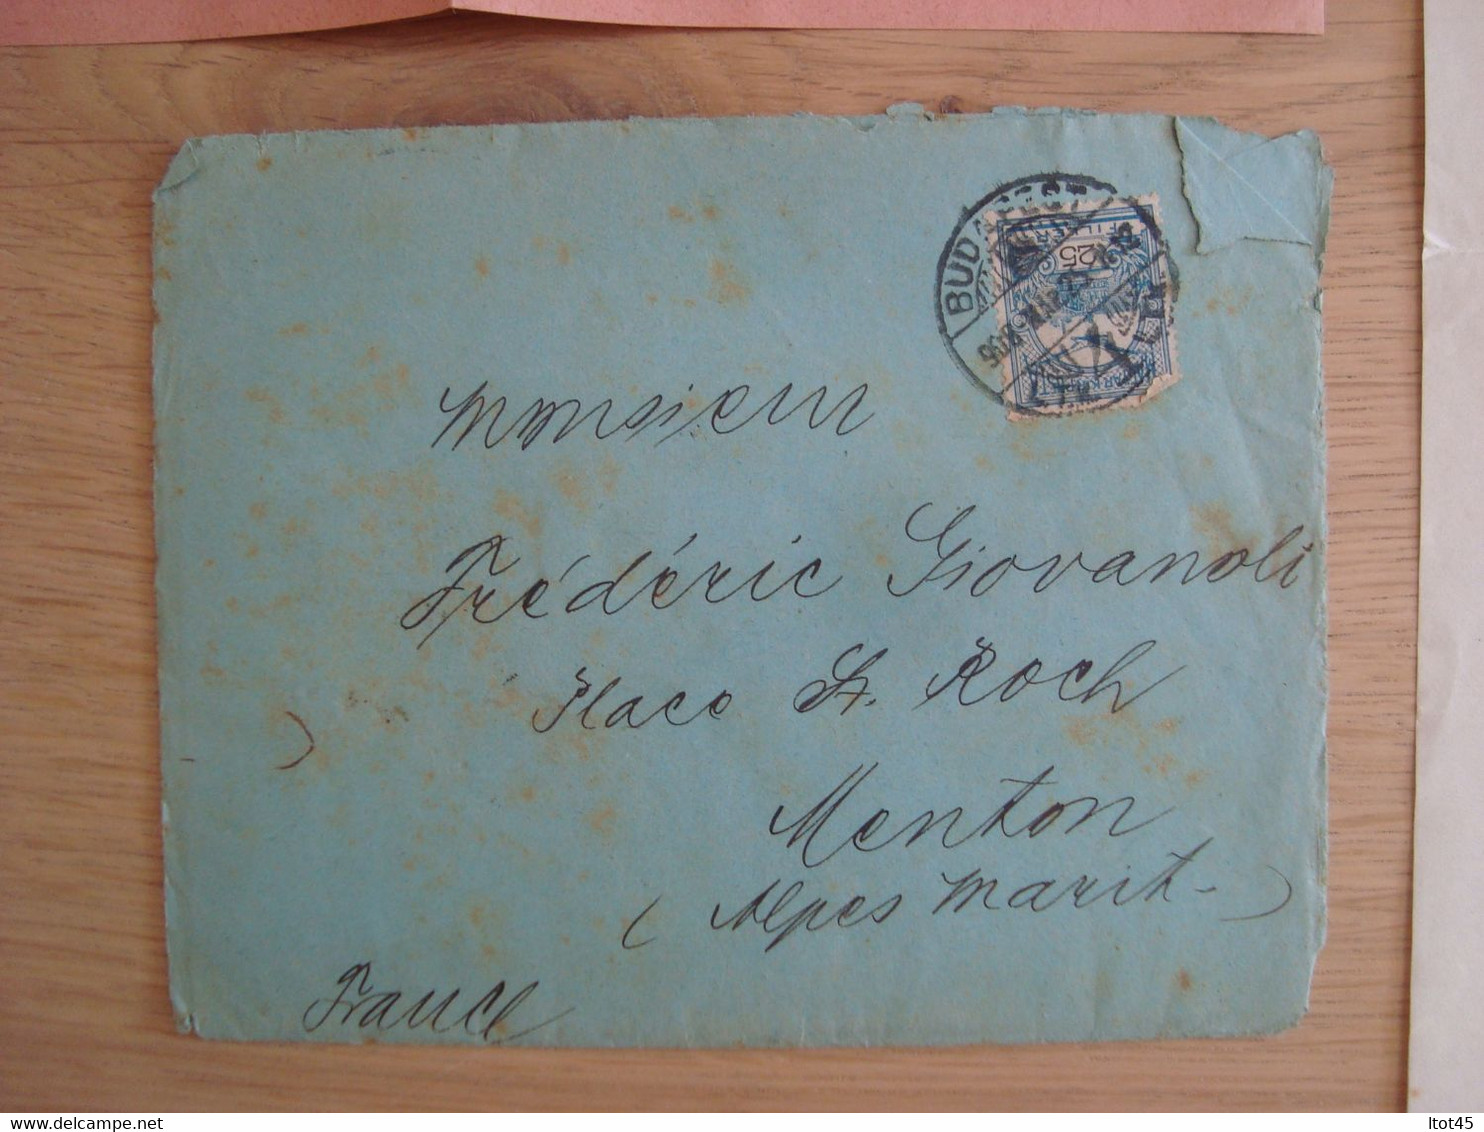 BUDAPEST
25
FILLÉR
Monsieur
Frédéric Giovanoli
Place St. Roch
Menton
( Alpes Marit- )
France
delcampe.net
Itot45